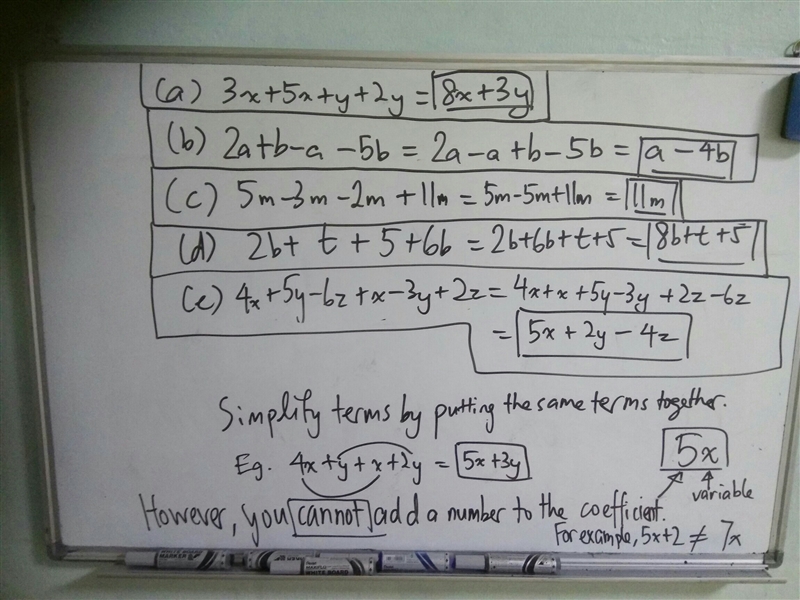 (a) 3x+5x+y+2y = 8x+3y
(b) 2a+b-a-5b = 2a-a+b-5b = a-4b
(c) 5m-3m-2m+11m = 5m-5m+11m = 11m
(d) 2b+t+5+6b = 2b+6b+t+5 = 8b+t+5
(e) 4x+5y-6z+x-3y+2z = 4x+x+5y-3y+2z-6z
= 5x+2y-4z
Simplify terms by putting the same terms together.
Eg. 4x+y+x+2y = 5x+3y
5x
variable
However, you cannot add a number to the coefficient.
For example, 5x+2 ≠ 7x